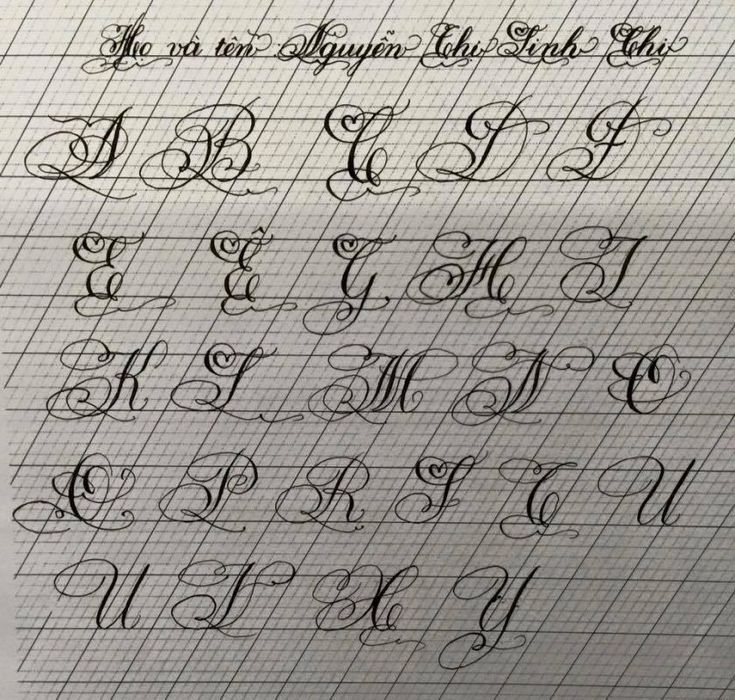 Họ và tên Nguyễn Thị Linh Chi
A B C D Đ
E Ê G H I
K L M N O
Q P R S T U
U V X Y